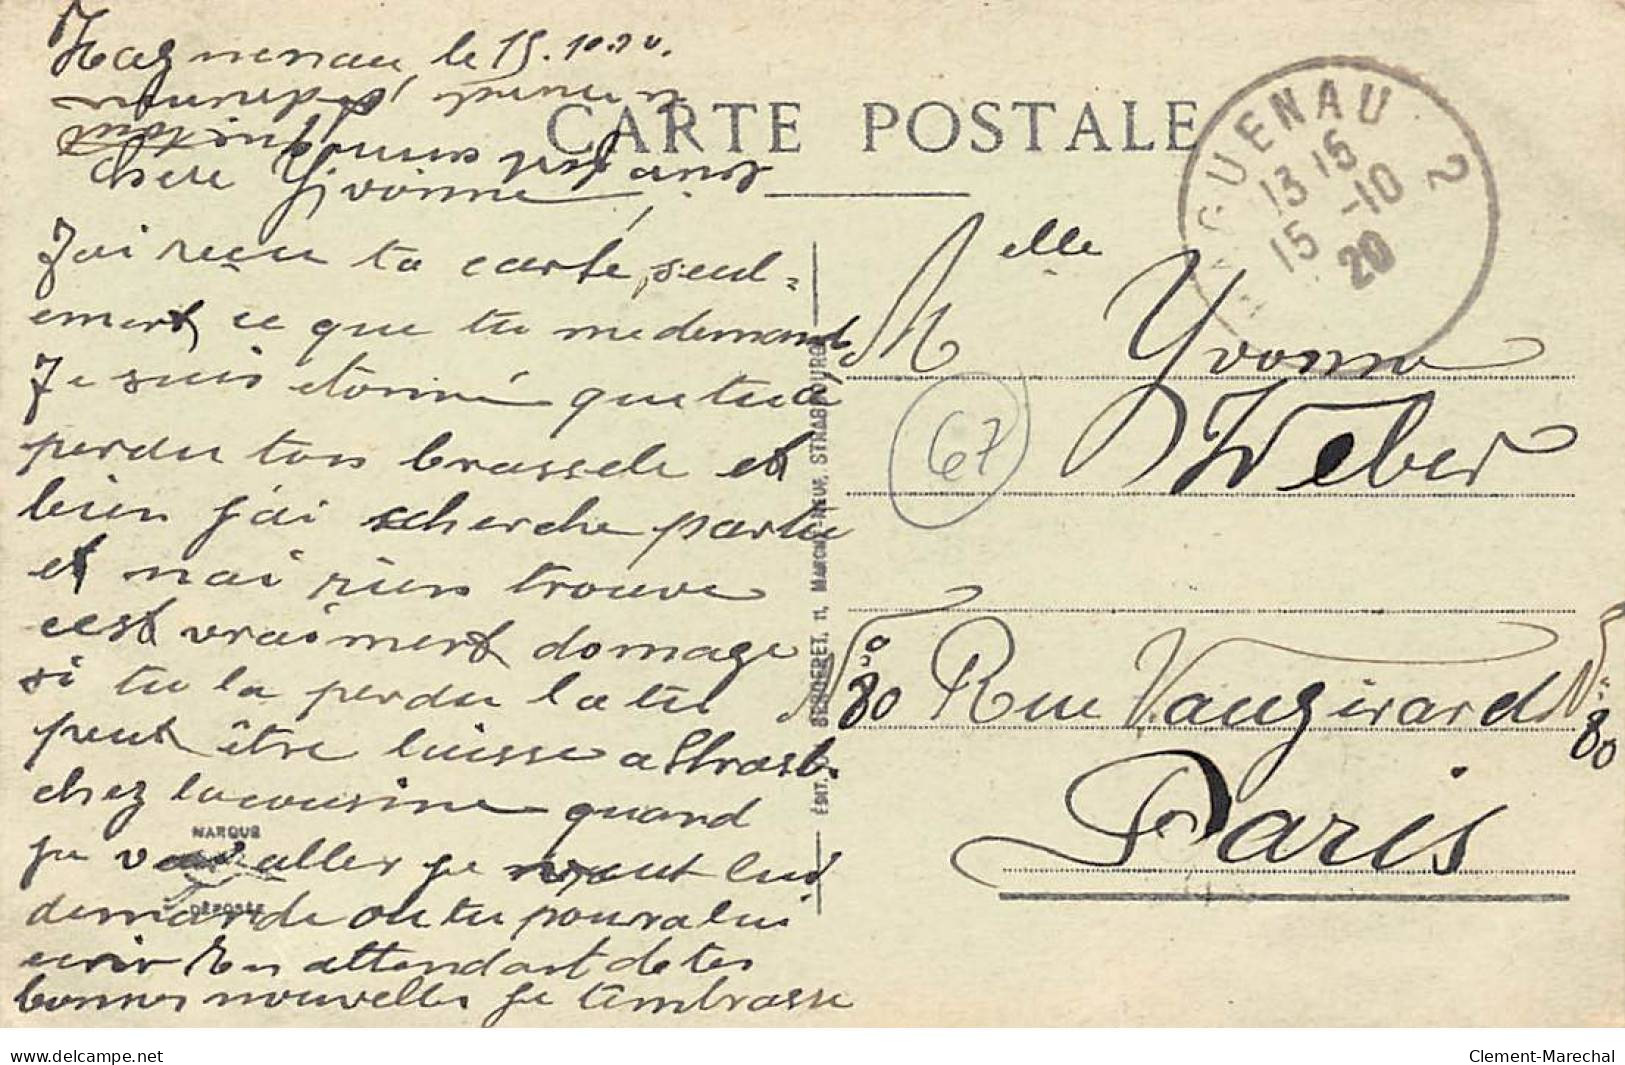 Haguenau, le 15.10.20.
CARTE POSTALE
Chère Yvonne,
J'ai reçu ta carte, seul-
ement ce que tu me demande
Je suis étonné que tu a
perdu ton brassele et
bien j'ai cherche partu
et n'ai rien trouve
cest vraiment domage
si tu la perdu la tu
peut être luisse a Strasb.
chez la cousine quand
je vai aller je veut lui
demande ou tu pourra lui
ecrir En attendant de tes
bonnes nouvelles je t'embrasse
MARQUE
DÉPOSÉE
ÉDIT. 11, MARCHÉ-NEUF, STRASBOURG
GUENAU 2
13 15
15 -10
20
Melle Yvonne
Weber
67
80 Rue Vaugirard No 80
Paris
www.delcampe.net
Clement-Marechal